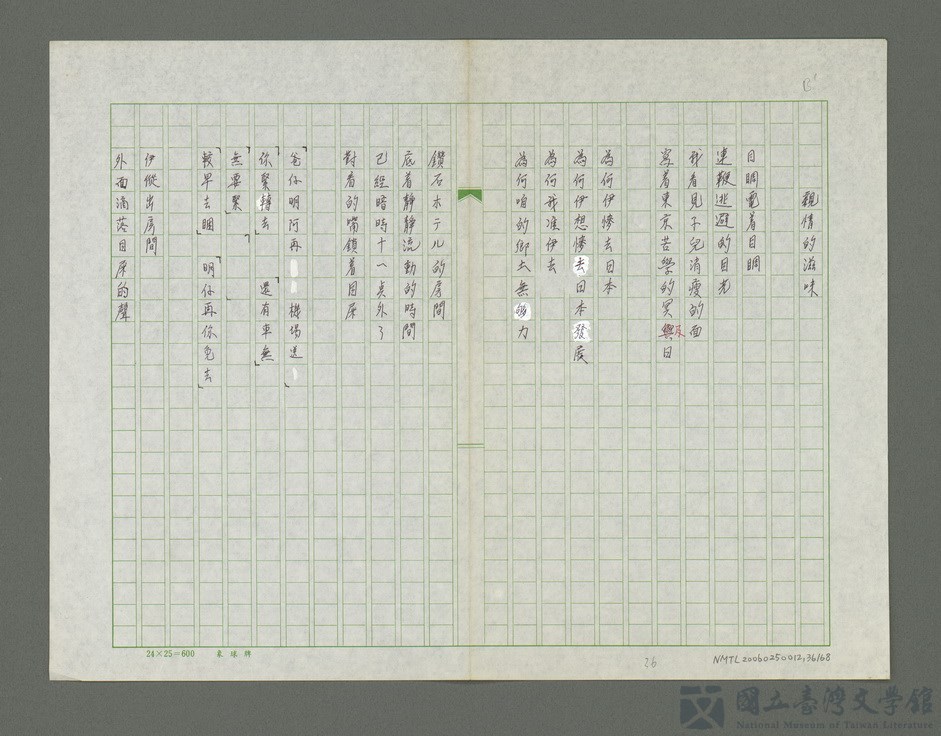 親情的滋味
目睭電着目睭
連鞭逃避的目光
我看見子兒消瘦的面
寫着東京苦學的冥與日
為何伊慘去日本
為何伊想慘去日本發展
為何我准伊去
為何咱的鄉土無夠力
鑽石ホテル的房間
底着靜靜流動的時間
已經暗時十一点外了
對看的嘴鎖着目屎
爸仔明阿再 機場送
「你緊轉去 」「還有車無」
「無要緊」「 」
「較早去睏」「明仔再你免去」
伊傱出房間
外面滴落目屎的聲
24×25=600
26
NMTL20060250012,36/68
國立臺灣文學館
National Museum of Taiwan Literature